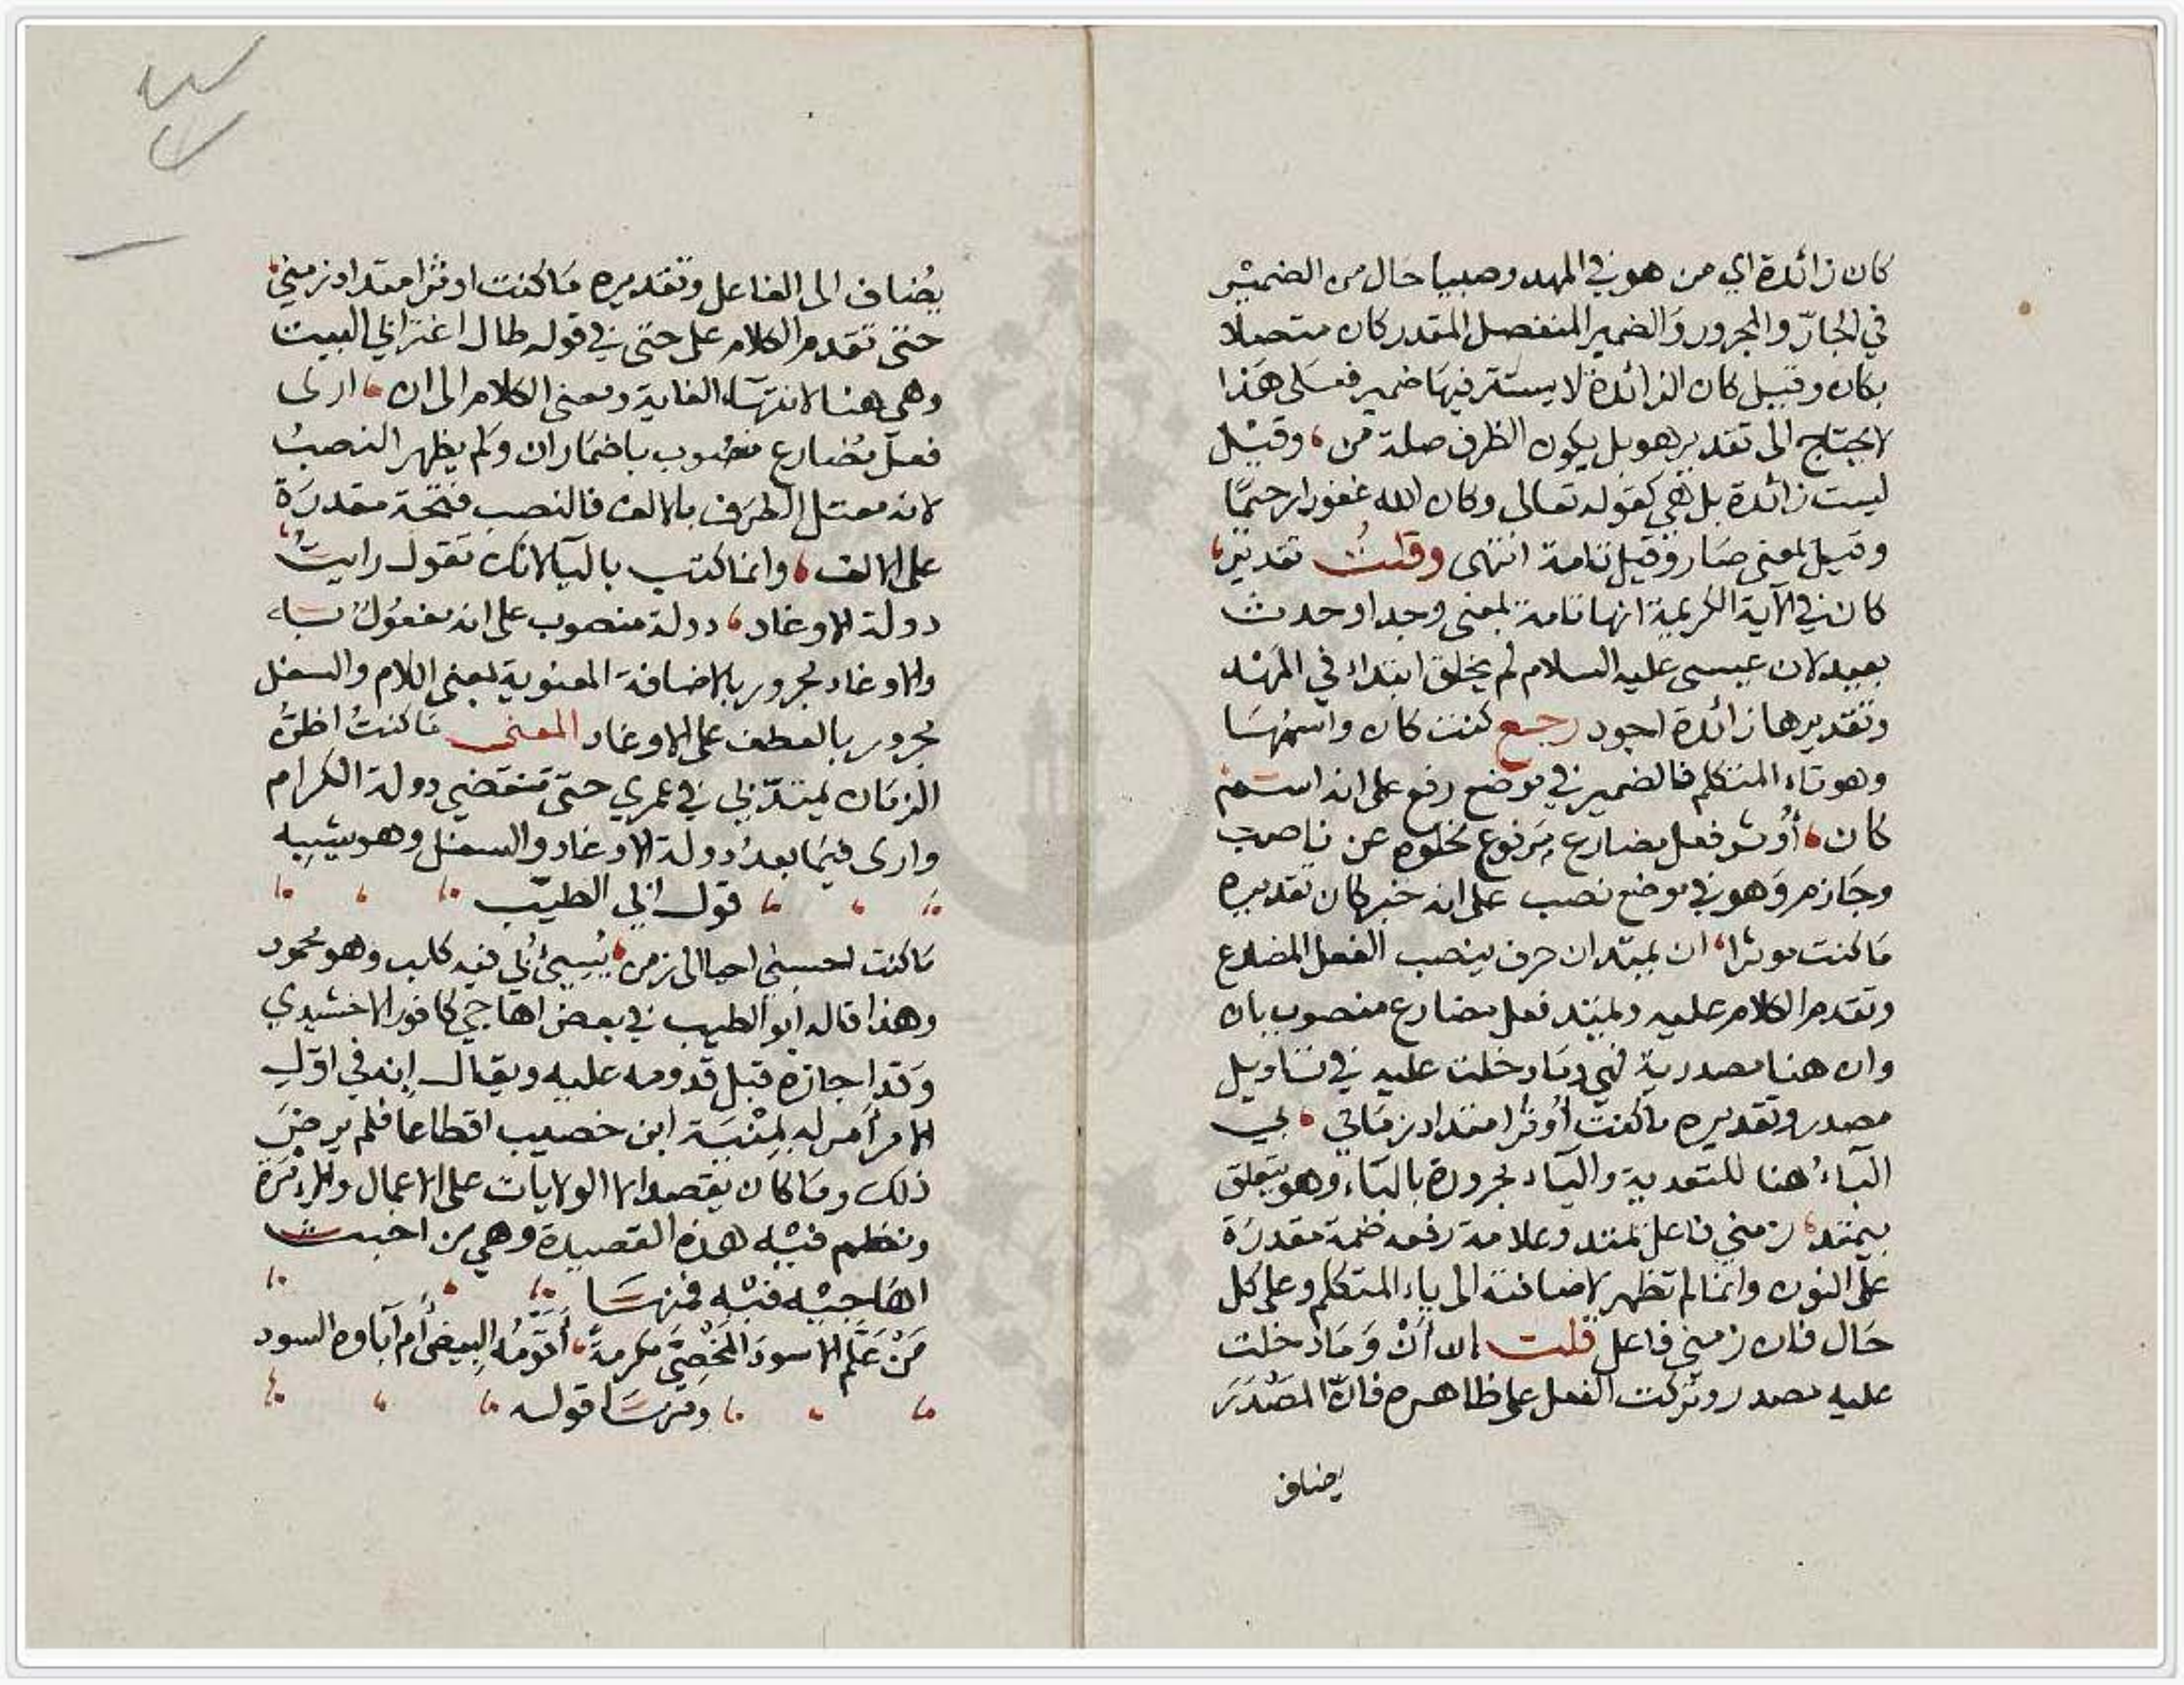 كان زائدة اي من هو في المهد وصبيا حال من الضمير
في الجارّ والمجرور والضمير المنفصل المقدر كان متصلا
بكان وقيل كان الزائدة لا يستتر فيها ضمير فعلى هذا
لا يحتاج الى تقدير هو بل يكون الظرف صلة من، وقيل
ليست زائدة بل هي كقوله تعالى وكان الله غفورا رحيمًا
وقيل بمعنى صار وقيل تامة انتهى وقلتُ تقدير،
كان في الآية الكريمة انها تامة بمعنى وجد او حدث
بعيد لان عيسى عليه السلام لم يخلق ابتداء في المهد
وتقديرها زائدة اجود رجع كنت كان واسمها
وهو تاء المتكلم فالضمير في موضع رفع على انه اسم
كان، أوثر فعل مضارع مرفوع لخلوه عن ناصب
وجازم وهو في موضع نصب على انه خبر كان تقديره
ما كنت موثرا، ان يمتد ان حرف ينصب الفعل المضارع
وتقدم الكلام عليه ويمتد فعل مضارع منصوب بان
وان هنا مصدرية فهي وما دخلت عليه في تاويل
مصدر وتقديره ما كنت أوثر امتداد زماني، بي
الباءُ هنا للتعدية والياء مجرورة بالباء وهو يتعلق
بيمتد، زمني فاعل يمتد وعلامة رفعه ضمة مقدرة
على النون وانما لم تظهر لاضافته الى ياء المتكلم وعلى كل
حال فان زمني فاعل قلت ان أنْ وَمَا دخلت
عليه مصدر وتركت الفعل على ظاهره فانّ المَصْدَرَ
يضاف
يُضاف الى الفاعل وتقديره ما كنت اوثر امتداد زمني،
حتى تقدم الكلام على حتى في قوله طال اغترابي البيت
وهي هنا لانتهاء الغاية ومعنى الكلام الى ان، ارى
فعل مُضارع منصوب باضمار ان ولم يظهر النصبُ
لانه معتل الطرف بالالف فالنصب فتحة مقدرة
على الالف، وانما كتب بالياء لانك تقول رايتُ،
دولة الاوغاد، دولة منصوب على انه مفعول به
والاوغاد مجرور بالاضافة المعنوية بمعنى اللام والسفل
مجرور بالعطف على الاوغاد المعنى ما كنتُ اظنُّ
الزمان يمتدّ بي في عمري حتى تنقضي دولة الكرام
وارى فيما بعدُ دولة الاوغاد والسفل وهو يشبه
قول ابي الطيّب
ما كنت احسبني احيا الى زمن، يُسِئُ بي فيه كلب وهو محمود
وهذا قاله ابو الطيب في بعض اهاجي كافور الاخشيدي
وقد اجازه قبل قدومه عليه ويقال إنه في اوّل
الامر أمر له بمِنْيَة ابن خصيب اقطاعا فلم يرضَ
ذلك وما كان يقصد الا الولايات على الاعمال والإمْرَة
ونظم فيه هذه القصيدة وهي من اخبث
اهَاجيه فيه فمنها
مَنْ عَلَّم الاسودَ المَخْصِيَّ مكرمةً، أقَوْمُه البيض أم آباوه السود
ومنها قوله